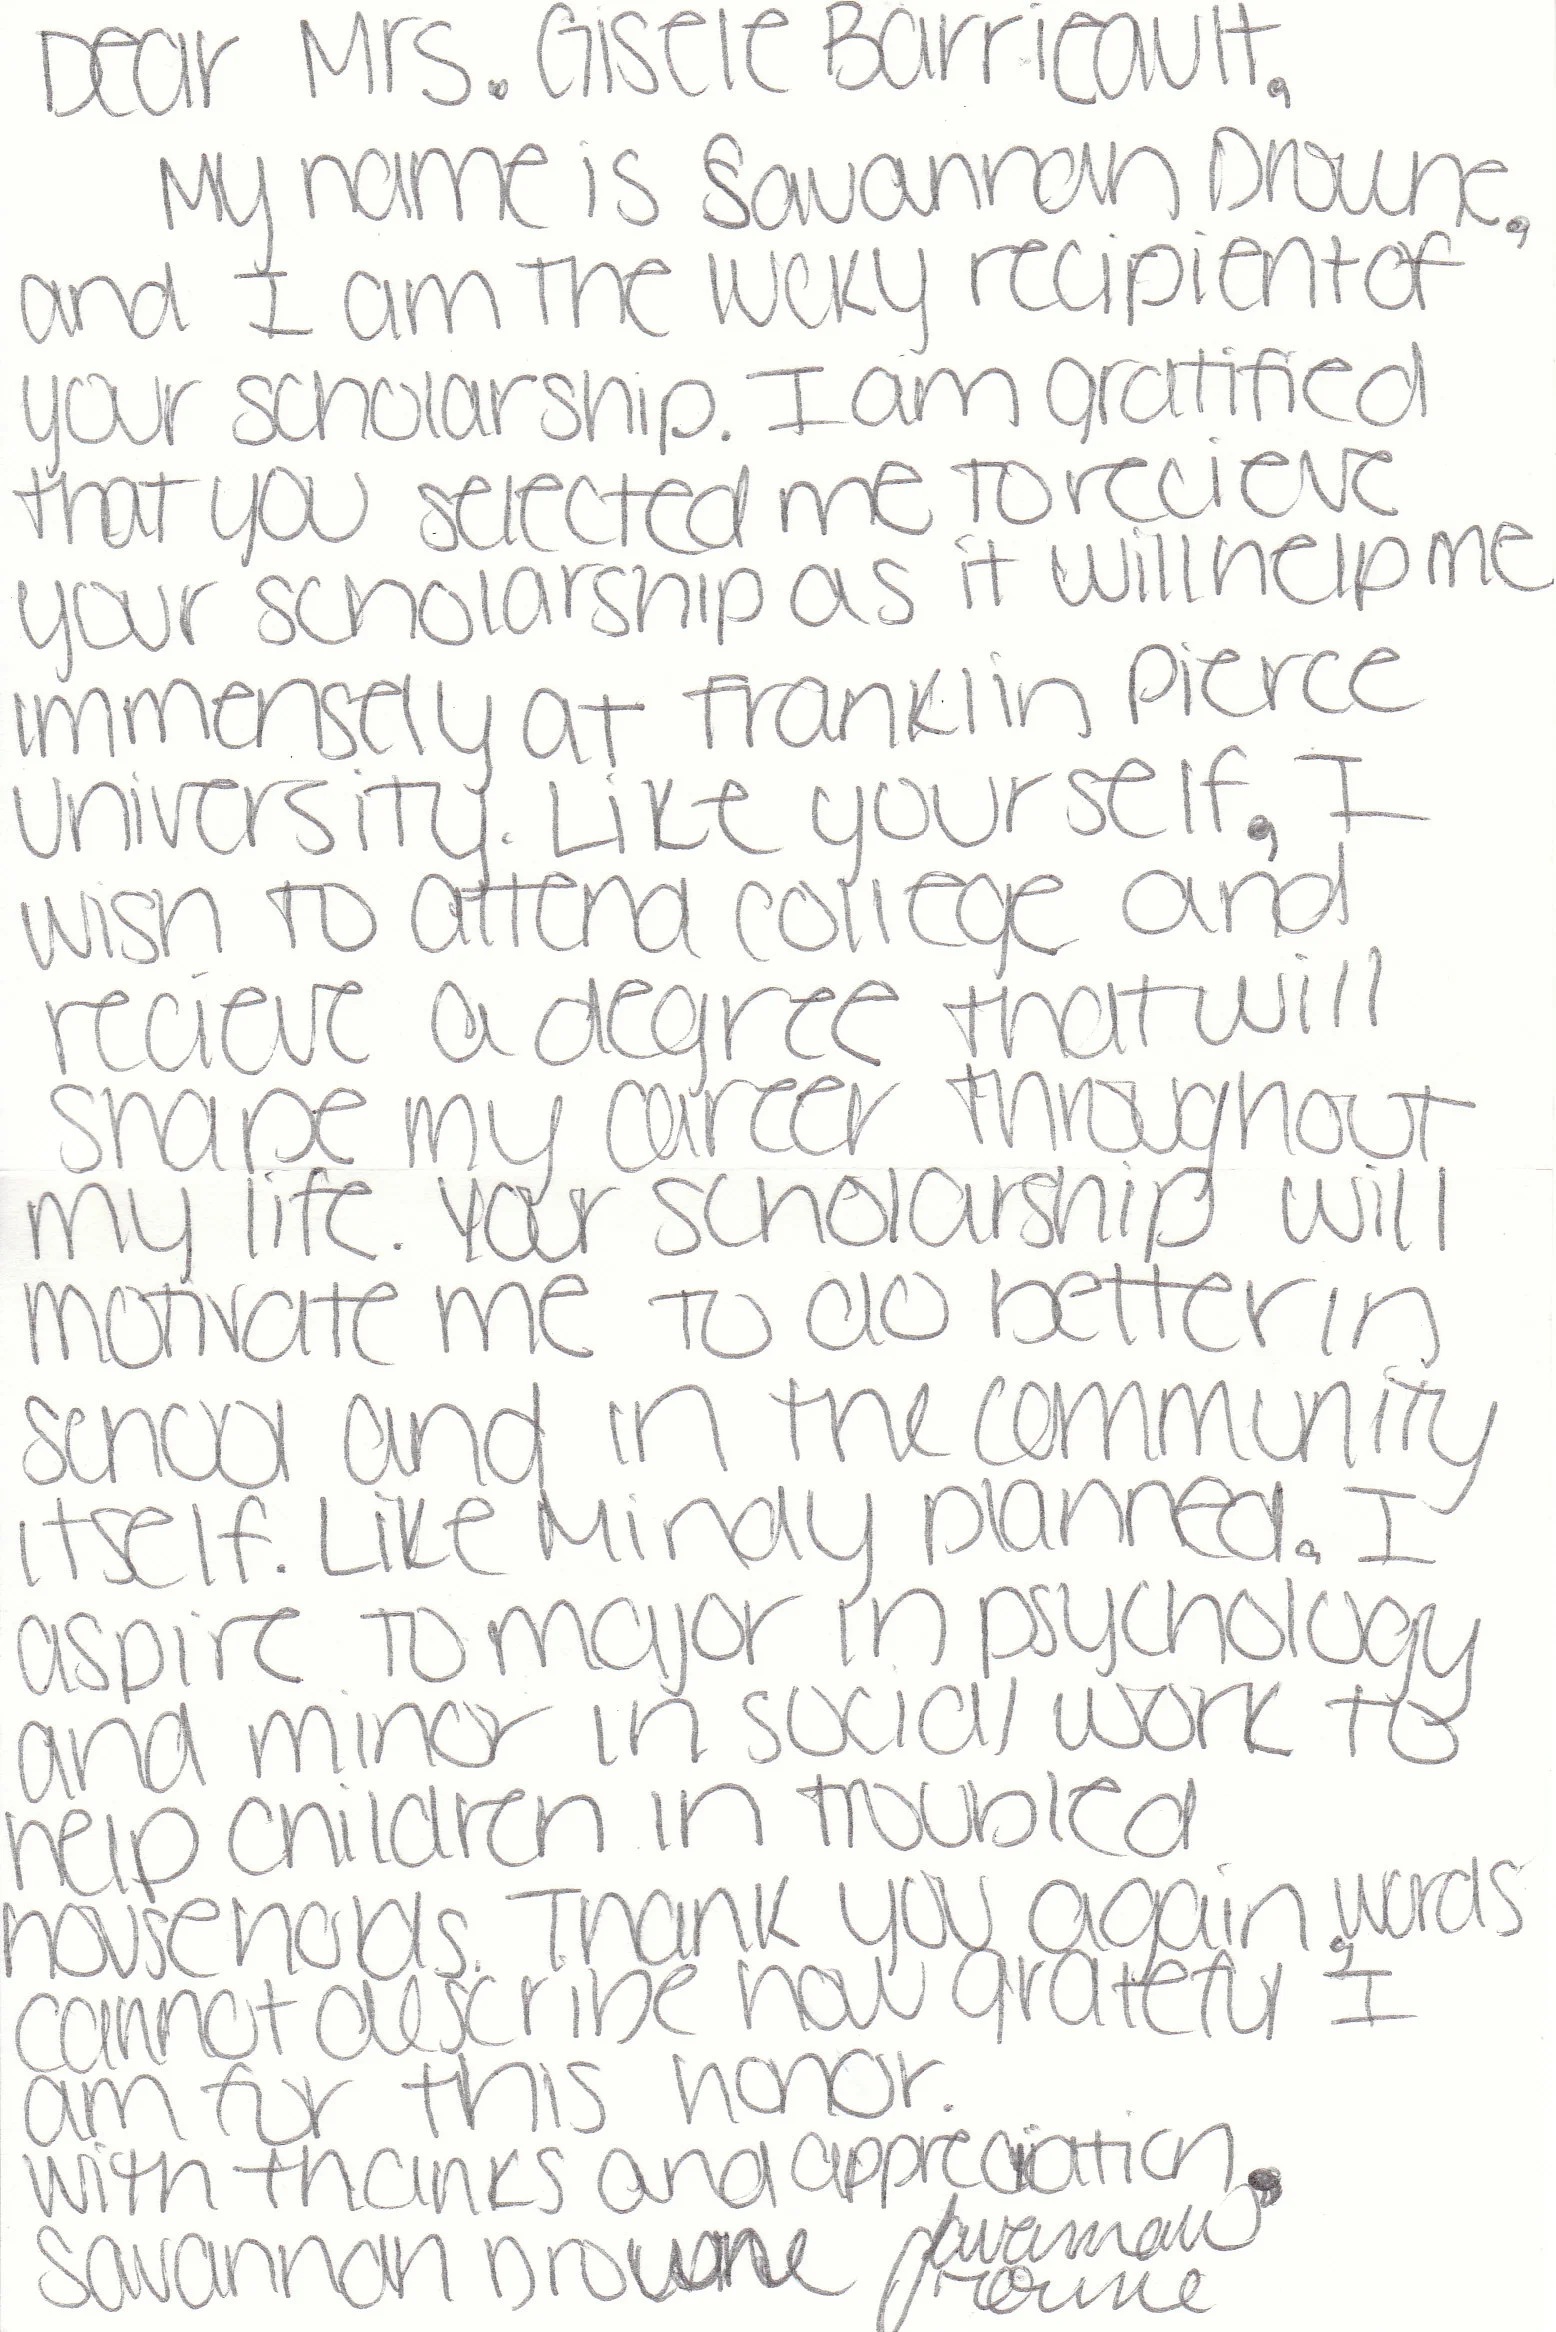 Dear Mrs. Gisele Barrieault,
My name is Savannah Drowne,
and I am the lucky recipient of
your scholarship. I am gratified
that you selected me to recieve
your scholarship as it will help me
immensely at Franklin Pierce
University. Like yourself, I
wish to attend college and
recieve a degree that will
shape my career throughout
my life. Your scholarship will
motivate me to do better in
school and in the community
itself. Like Mindy planned, I
aspire to major in psychology
and minor in social work to
help children in troubled
households. Thank you again, words
cannot describe how grateful I
am for this honor.
with thanks and appreciation,
Savannah Drowne Savannah
Drowne